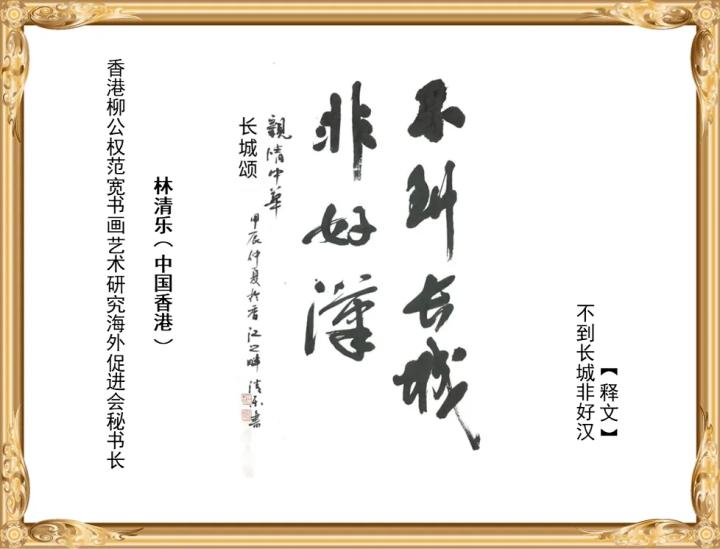 【释文】
不到长城非好汉
不到长城
非好漢
親情中華
长城颂
甲辰仲夏於香江之畔清乐书
林清乐（中国香港）
香港柳公权范宽书画艺术研究海外促进会秘书长